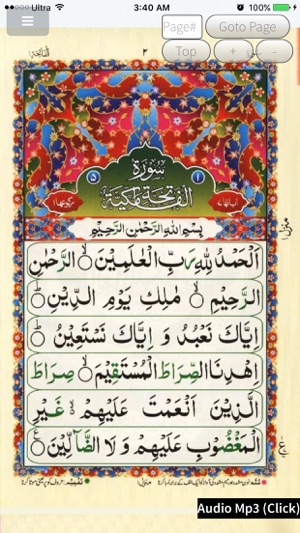 Ultra 3:40 AM 100%
Page# Goto Page
Top + -
٢
سُوْرَةُ
۵ ١
الْفَاتِحَةِ مَكِّيَّةٌ
بِسْمِ اللهِ الرَّحْمٰنِ الرَّحِيْمِ
اَلْحَمْدُ لِلّٰهِ رَبِّ الْعٰلَمِيْنَ ۙ الرَّحْمٰنِ
الرَّحِيْمِ ۙ مٰلِكِ يَوْمِ الدِّيْنِ ؕ
اِيَّاكَ نَعْبُدُ وَ اِيَّاكَ نَسْتَعِيْنُ ؕ
اِهْدِنَا الصِّرَاطَ الْمُسْتَقِيْمَ ۙ صِرَاطَ
الَّذِيْنَ اَنْعَمْتَ عَلَيْهِمْ ۙ غَيْرِ
الْمَغْضُوْبِ عَلَيْهِمْ وَ لَا الضَّآلِّيْنَ ۠
Audio Mp3 (Click)